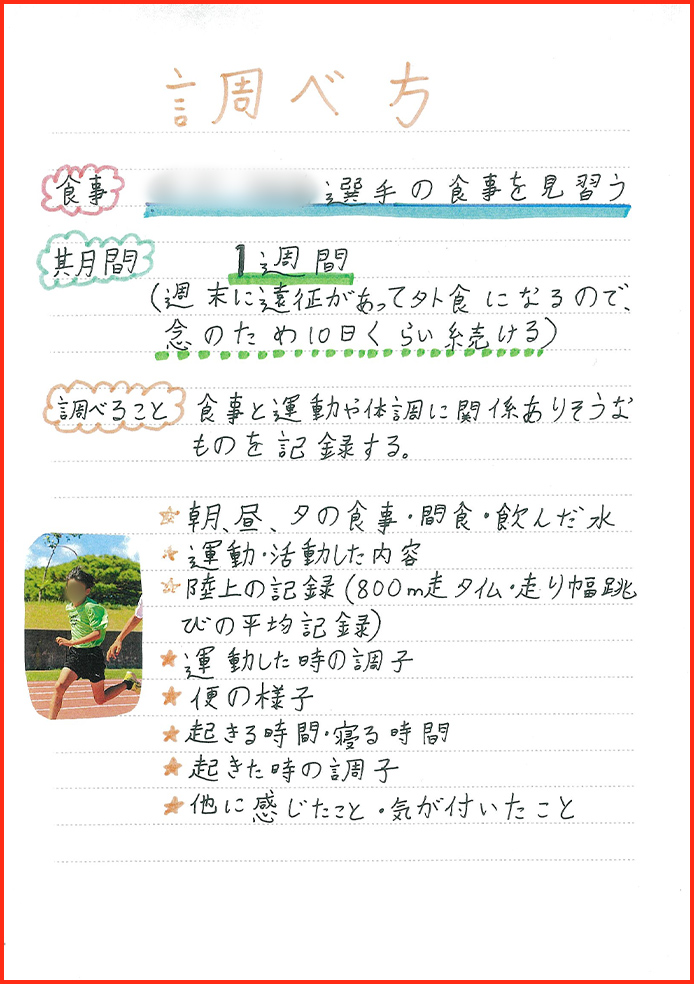 調べ方
食事 選手の食事を見習う
期間 1週間
(週末に遠征があって外食になるので、
念のため10日くらい続ける)
調べること 食事と運動や体調に関係ありそうな
ものを記録する。
☆朝、昼、夕の食事・間食・飲んだ水
★運動・活動した内容
☆陸上の記録(800m走タイム・走り幅跳
びの平均記録)
★運動した時の調子
★便の様子
★起きる時間・寝る時間
★起きた時の調子
★他に感じたこと・気が付いたこと